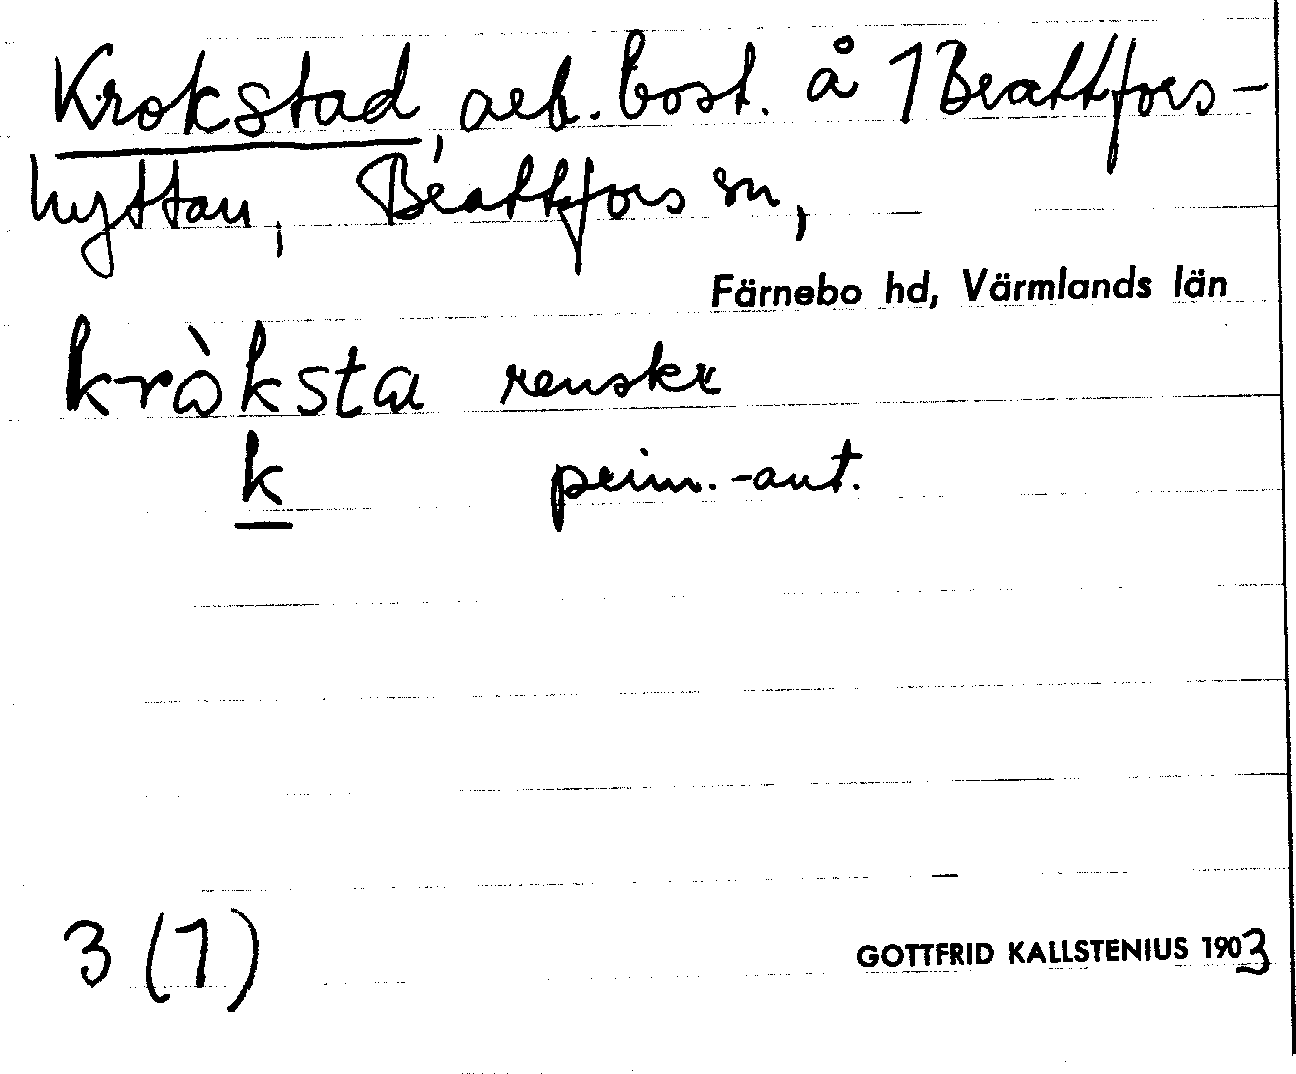 Krokstad, arb. bost. å 1 Brattfors-
hyttan, Brattfors sn,
Färnebo hd, Värmlands län
kròksta renskr
k prim.-ant.
3 (1)
GOTTFRID KALLSTENIUS 1903